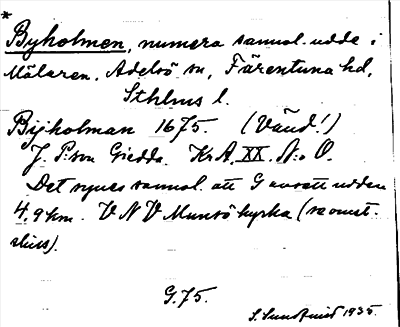 *
Byholmen, numera sannol. udde i
Mälaren, Adelsö sn, Färentuna hd,
Sthlms l.
Bijholman 1675. (Vänd!)
J. P:son Giedda. KrA XX. N:o O.
Det synes sannol. att G avsett udden
4,9 km. V N V Munsö kyrka (
G. 75.
S. Sundqvist 1935.